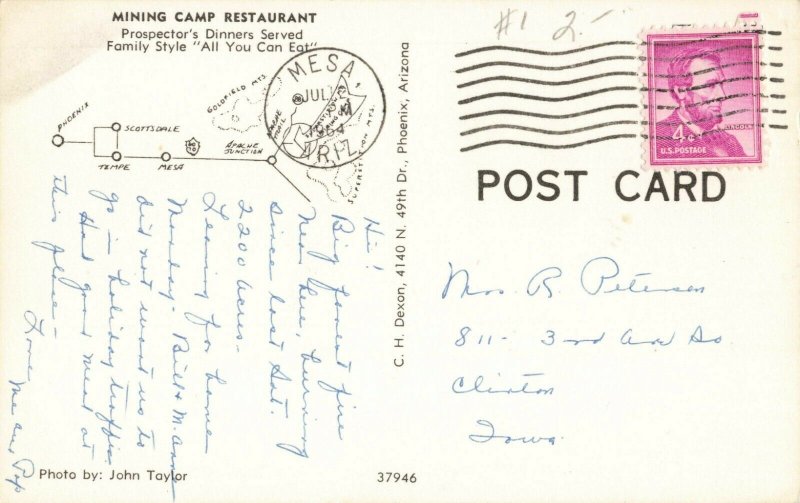 MINING CAMP RESTAURANT
Prospector's Dinners Served
Family Style "All You Can Eat"
PHOENIX
SCOTTSDALE
TEMPE
MESA
APACHE JUNCTION
GOLDFIELD MTS.
APACHE TRAIL
SUPERSTITION MTS.
MESA,
JUL
1964
ARIZ.
Hi!
Big forest fire
near here, burning
since last Sat.
2200 acres.
Leaving for home
Monday - Bill & M. Ann
did not want us to
go in holiday traffic.
Had good meal at
this place -
Love Me and Pop
Photo by: John Taylor
37946
C. H. Dexon, 4140 N. 49th Dr., Phoenix, Arizona
#1 2.-
4¢
LINCOLN
U.S. POSTAGE
POST CARD
Mrs R. Petersen
811- 3rd Ave So
Clinton
Iowa